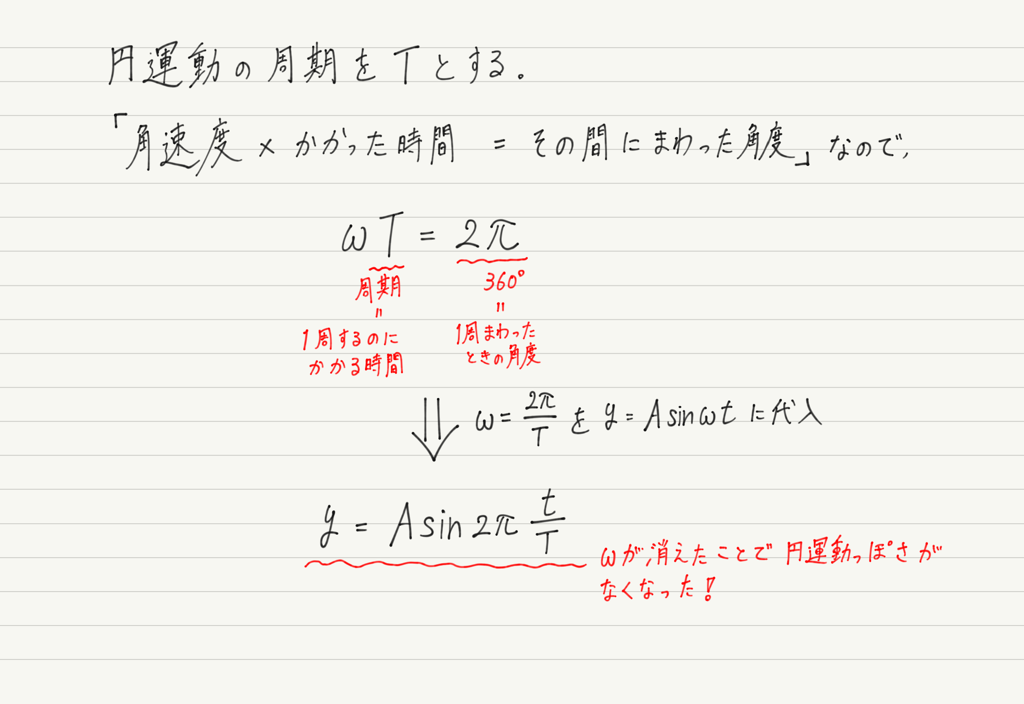 円運動の周期をTとする。
「角速度 × かかった時間 = その間にまわった角度」なので、
ωT = 2π
周期
=
1周するのに
かかる時間
360°
=
1周まわった
ときの角度
⇓ ω = 2π/T を y = A sin ωt に代入
y = A sin 2π t/T
ωが消えたことで円運動っぽさが
なくなった!